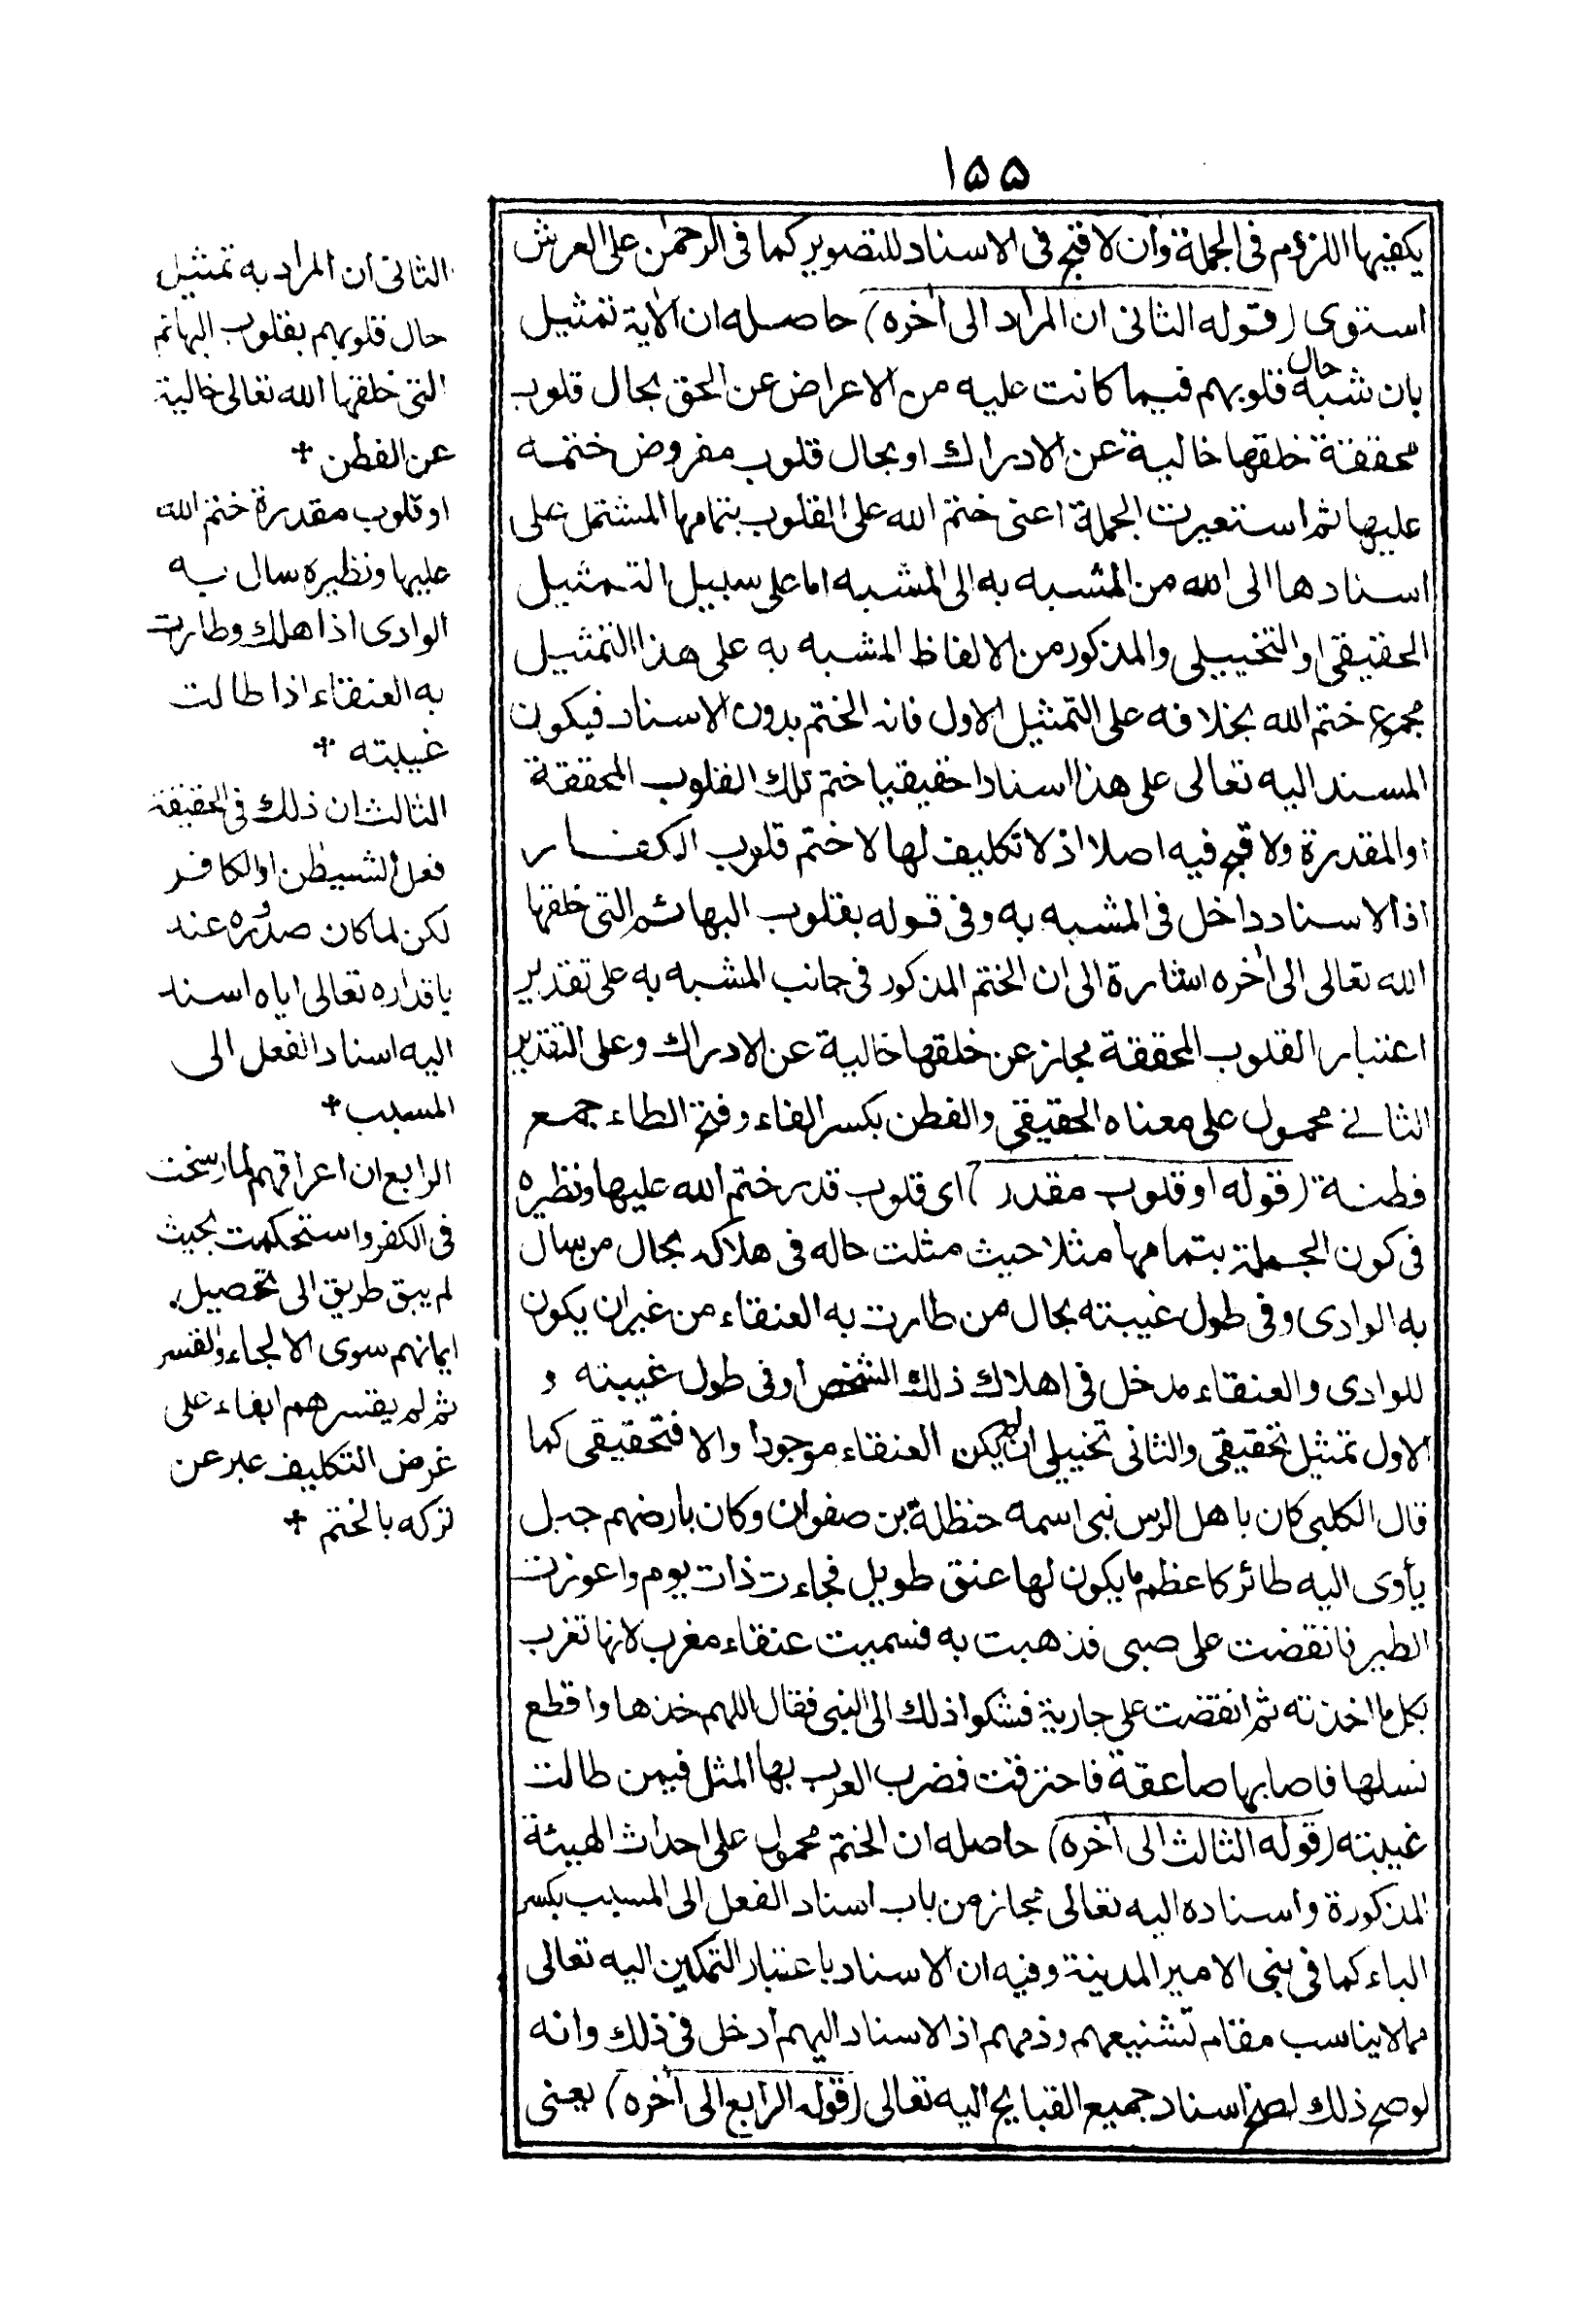 ١٥٥
يكفيها اللزوم فى الجملة وان لا قبح فى الاسناد للتصوير كما فى الرحمٰن على العرش
استوى (قوله الثانى ان المراد الى اٰخره) حاصله ان الاٰية تمثيل
بان شبه حال قلوبهم فيما كانت عليه من الاعراض عن الحق بحال قلوب
محققة خلقها خالية عن الادراك او بحال قلوب مفروض ختمه
عليها ثم استعيرت الجملة اعنى ختم الله على القلوب بتمامها المشتمل على
اسنادها الى الله من المشبه به الى المشبه اما على سبيل التمثيل
الحقيقى او التخييلى والمذكور من الالفاظ المشبه به على هذا التمثيل
مجموع ختم الله بخلافه على التمثيل الاول فانه الختم بدون الاسناد فيكون
المسند اليه تعالى على هذا اسنادا حقيقيا ختم تلك القلوب المحققة
او المقدرة ولا قبح فيه اصلا اذ لا تكليف لها لا ختم قلوب الكفار
اذ الاسناد داخل فى المشبه به وفى قوله بقلوب البهائم التى خلقها
الله تعالى الى اٰخره اشارة الى ان الختم المذكور فى جانب المشبه به على تقدير
اعتبار القلوب المحققة مجاز عن خلقها خالية عن الادراك وعلى التقدير
الثانے محمول على معناه الحقيقى والفطن بكسر الفاء وفتح الطاء جمع
فطنة (قوله او قلوب مقدر) اى قلوب قدر ختم الله عليها ونظيره
فى كون الجملة بتمامها مثلا حيث مثلت حاله فى هلاكه بحال من سال
به الوادى وفى طول غيبته بحال من طارت به العنقاء من غير ان يكون
للوادى والعنقاء مدخل فى اهلاك ذلك الشخص او فى طول غيبته و
الاول تمثيل تحقيقى والثانى تخييلى ان لم يكن العنقاء موجودا والا فتحقيقى كما
قال الكلبى كان باهل الرس نبى اسمه حنظلة بن صفوان وكان بارضهم جبل
يأوى اليه طائر كاعظم ما يكون لها عنق طويل فجاءت ذات يوم واعوزت
الطير فانقضت على صبى فذهبت به فسميت عنقاء مغرب لانها تغرب
بكل ما اخذته ثم انقضت على جارية فشكوا ذلك الى النبى فقال اللهم خذها واقطع
نسلها فاصابها صاعقة فاحترقت فضرب العرب بها المثل فيمن طالت
غيبته (قوله الثالث الى اٰخره) حاصله ان الختم محمول على احداث الهيئة
المذكورة واسناده اليه تعالى مجاز من باب اسناد الفعل الى المسبب بكسر
الباء كما فى بنى الامير المدينة وفيه ان الاسناد باعتبار التمكين اليه تعالى
مما لا يناسب مقام تشنيعهم وذمهم اذ الاسناد اليهم أدخل فى ذلك وانه
لو صح ذلك لصح اسناد جميع القبايح اليه تعالى (قوله الرابع الى اٰخره) يعنى
الثانى ان المراد به تمثيل
حال قلوبهم بقلوب البهائم
التى خلقها الله تعالى خالية
عن الفطن +
او قلوب مقدرة ختم الله
عليها ونظيره سال به
الوادى اذا هلك وطارت
به العنقاء اذا طالت
غيبته +
الثالث ان ذلك فى الحقيقة
فعل الشيطٰن او الكافر
لكن لما كان صدوره عند
باقداره تعالى اياه اسند
اليه اسناد الفعل الى
المسبب +
الرابع ان اعراقهم لما رسخت
فى الكفر واستحكمت بحيث
لم يبق طريق الى تحصيل
ايمانهم سوى الالجاء والقسر
ثم لم يقسرهم ابقاء على
غرض التكليف عبر عن
تركه بالختم +